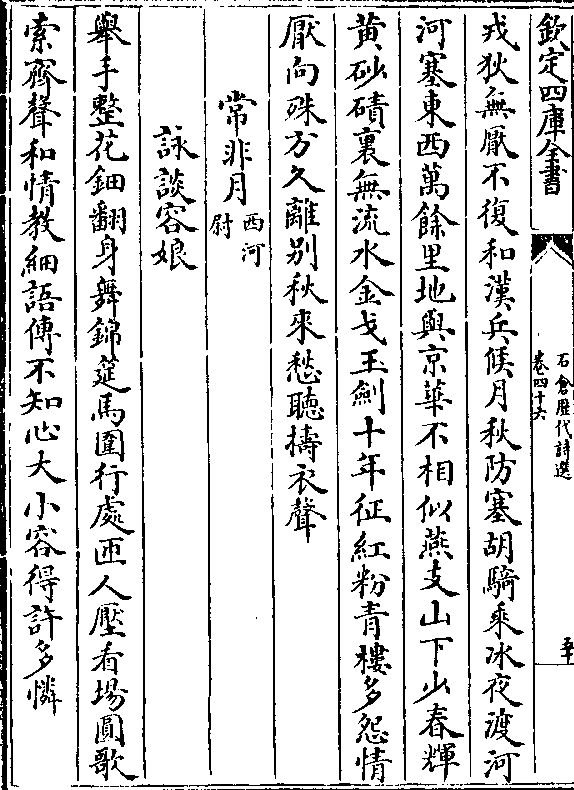 欽定四庫全書
石倉歷代詩選
卷四十六
五十
戎狄無厭不復和漢兵候月秋防塞胡騎乘冰夜渡河
河塞東西萬餘里地與京華不相似燕支山下少春輝
黃砂磧裏無流水金戈玉劍十年征紅粉青樓多怨情
厭向殊方久離别秋來愁聽擣衣聲
常非月西河尉
詠談容娘
舉手整花鈿翻身舞錦筵馬圍行處匝人壓看場圓歌
索齊聲和情教細語傳不知心大小容得許多憐